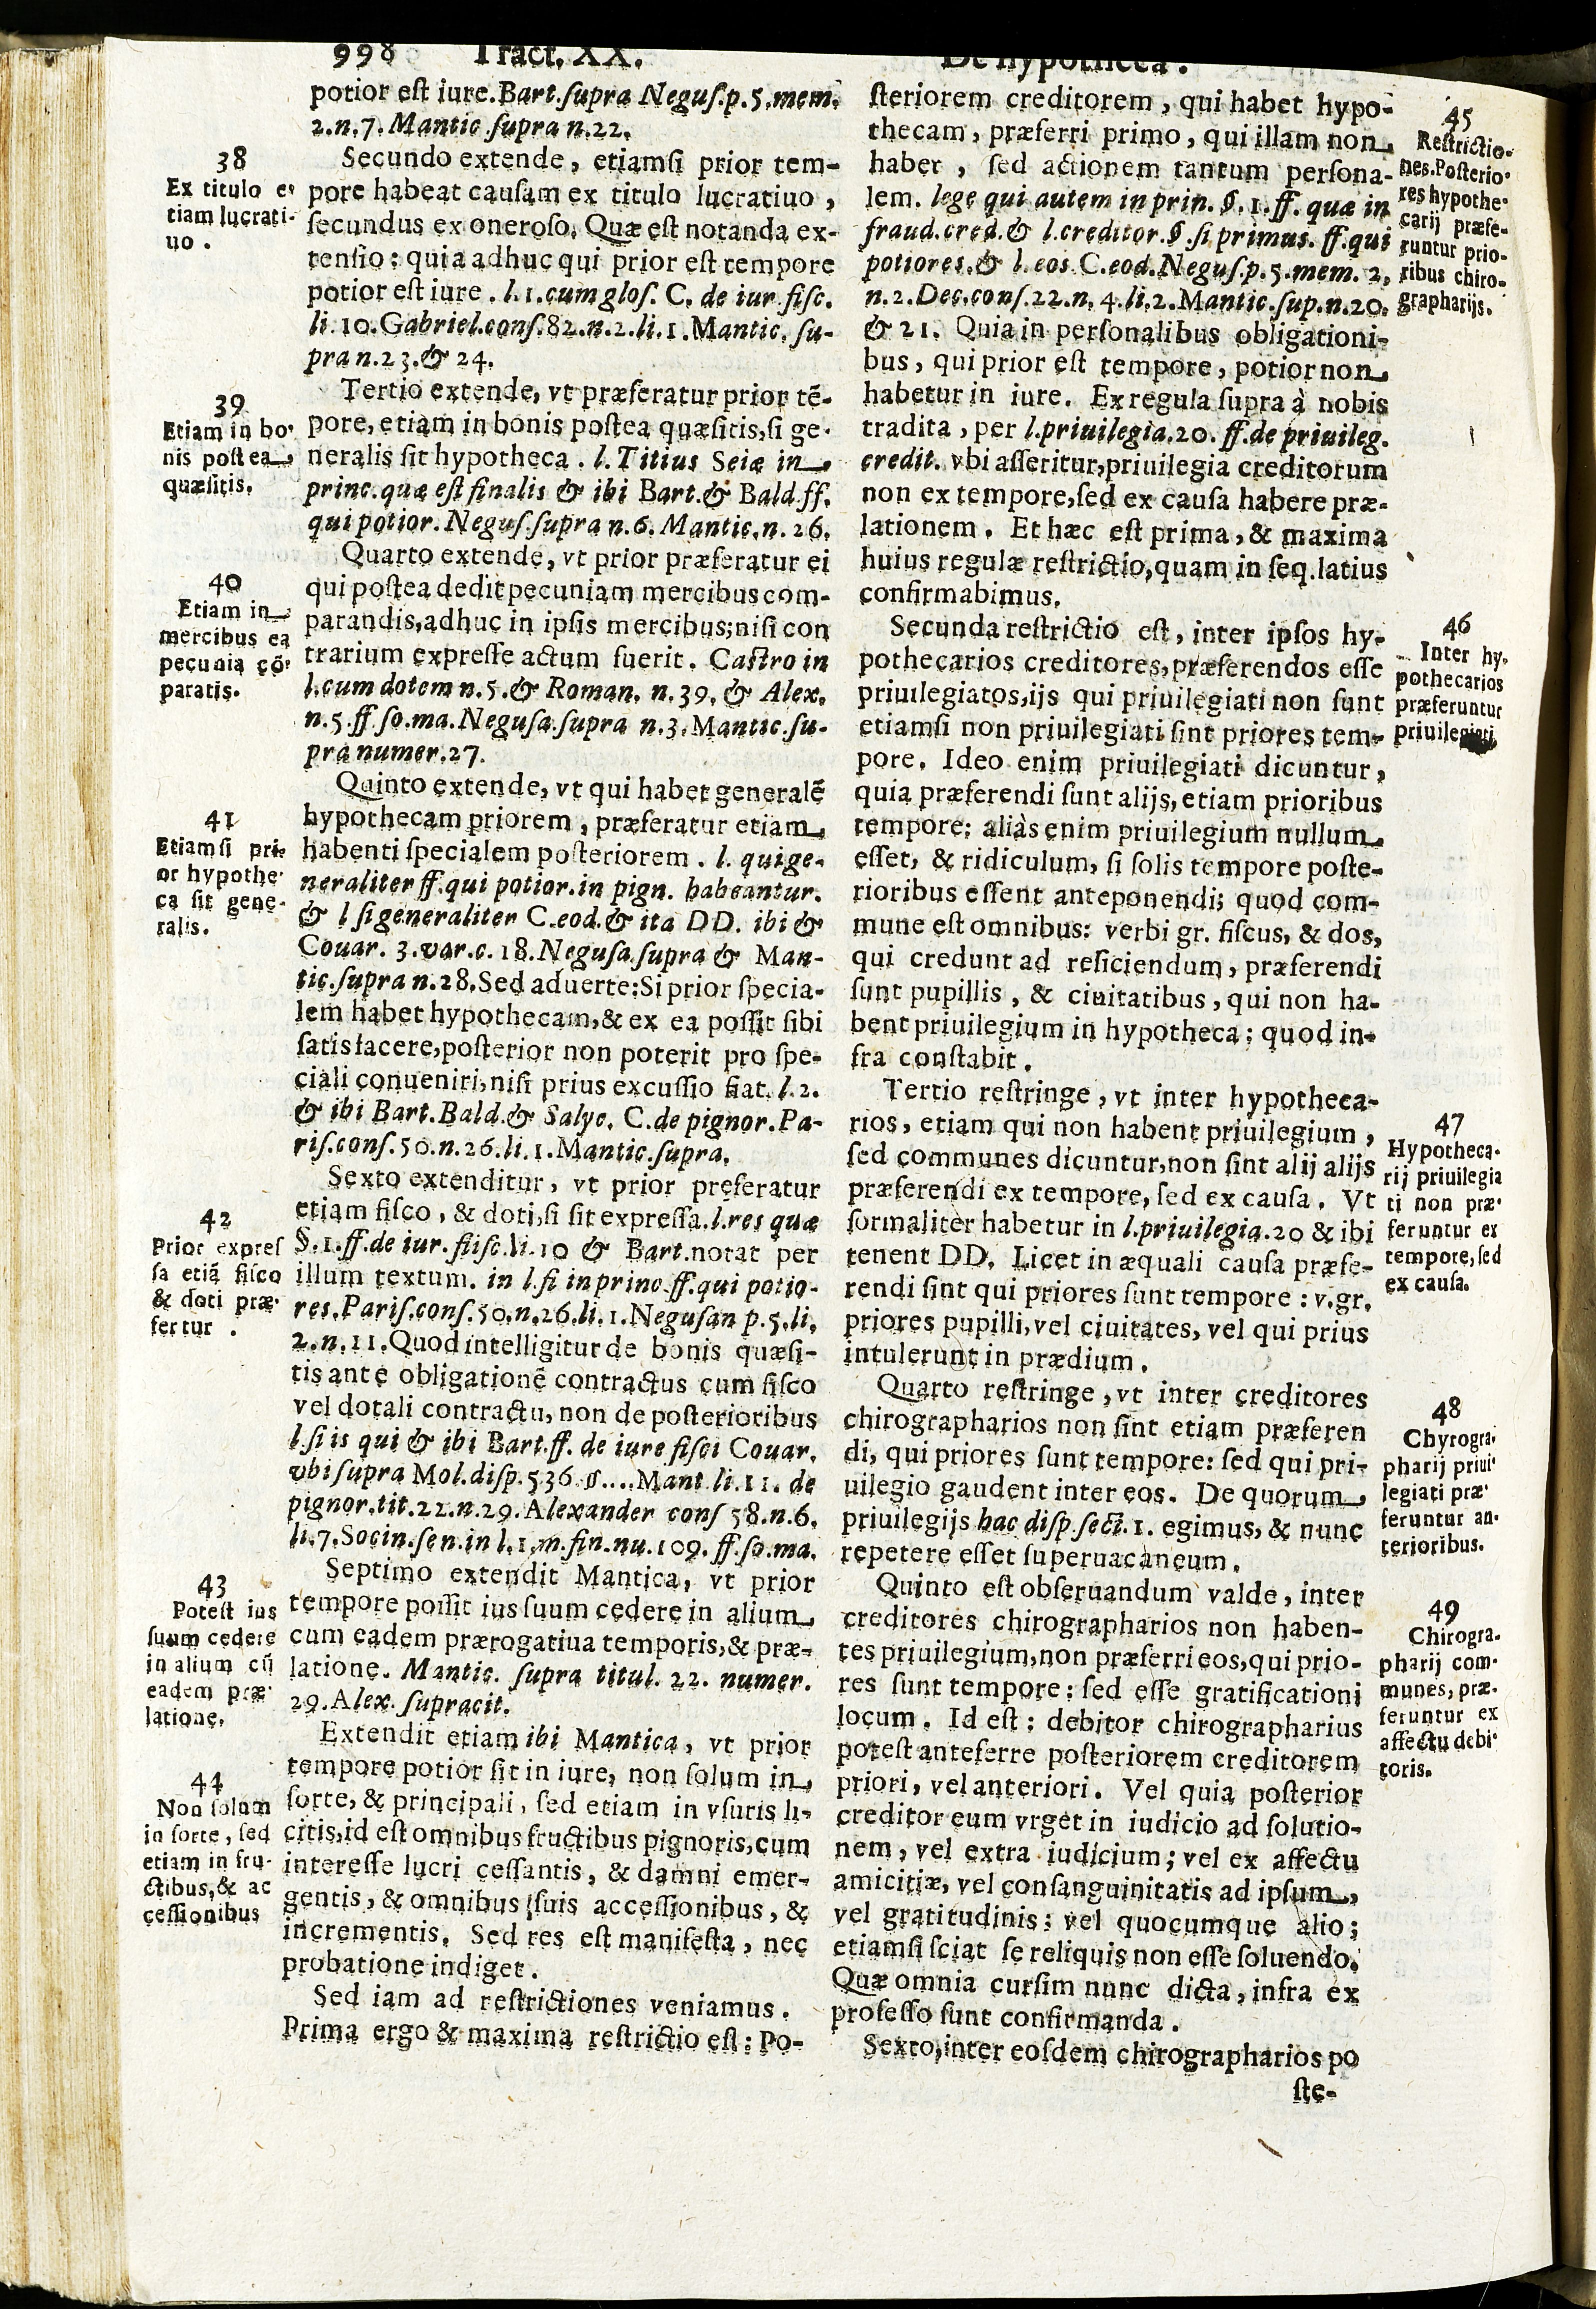 998 Tract. XX. De hypotheca.
potior est iure. Bart. supra Negus. p. 5. mem.
2. n. 7. Mantic supra n. 22.
38
Ex titulo e-
tiam lucrati-
uo.
Secundo extende, etiamsi prior tem-
pore habeat causam ex titulo lucratiuo,
secundus ex oneroso. Quæ est notanda ex-
tensio: quia adhuc qui prior est tempore
potior est iure. l. 1. cum glos. C. de iur. fisc.
li. 10. Gabriel. cons. 82. n. 2. li. 1. Mantic. su-
pra n. 23. & 24.
39
Etiam in bo-
nis postea
quæsitis.
Tertio extende, vt præferatur prior tē-
pore, etiam in bonis postea quæsitis, si ge-
neralis sit hypotheca. l. Titius Seiæ in
princ. quæ est finalis & ibi Bart. & Bald. ff.
qui potior. Negus. supra n. 6. Mantic. n. 26.
40
Etiam in
mercibus ea
pecunia cō-
paratis.
Quarto extende, vt prior præferatur ei
qui postea dedit pecuniam mercibus com-
parandis, adhuc in ipsis mercibus; nisi con
trarium expresse actum fuerit. Castro in
l. cum dotem n. 5. & Roman. n. 39. & Alex.
n. 5. ff. so. ma. Negusa. supra n. 3. Mantic. su-
pra numer. 27.
41
Etiamsi pri-
or hypothe-
ca sit gene-
ralis.
Quinto extende, vt qui habet generalē
hypothecam priorem, præferatur etiam
habenti specialem posteriorem. l. qui ge-
neraliter ff. qui potior. in pign. habeantur.
& l si generaliter C. eod. & ita DD. ibi &
Couar. 3. var. c. 18. Negusa. supra & Man-
tic. supra n. 28. Sed aduerte: Si prior specia-
lem habet hypothecam, & ex ea possit sibi
satisfacere, posterior non poterit pro spe-
ciali conueniri, nisi prius excussio fiat. l. 2.
& ibi Bart. Bald. & Salyc. C. de pignor. Pa-
ris. cons. 50. n. 26. li. 1. Mantic. supra.
42
Prior expres
sa etiā fisco
& doti præ-
fertur.
Sexto extenditur, vt prior preferatur
etiam fisco, & doti, si sit expressa. l. res quæ
§. 1. ff. de iur. fiisc. li. 10 & Bart. notat per
illum textum. in l. si in princ. ff. qui potio-
res. Paris. cons. 50. n. 26. li. 1. Negusan p. 5. li.
2. n. 11. Quod intelligitur de bonis quæsi-
tis ante obligationē contractus cum fisco
vel dotali contractu, non de posterioribus
l. si is qui & ibi Bart. ff. de iure fisci Couar.
vbi supra Mol. disp. 536. §.... Mant. li. 11. de
pignor. tit. 22. n. 29. Alexander cons 58. n. 6.
li. 7. Socin. sen. in l. 1. in. fin. nu. 109. ff. so. ma.
43
Potest ius
suum cedere
in alium cū
eadem præ-
latione.
Septimo extendit Mantica, vt prior
tempore possit ius suum cedere in alium
cum eadem prærogatiua temporis, & præ-
latione. Mantic. supra titul. 22. numer.
29. Alex. supra cit.
44
Non solum
in sorte, sed
etiam in fru-
ctibus, & ac
cessionibus
Extendit etiam ibi Mantica, vt prior
tempore potior sit in iure, non solum in
sorte, & principali, sed etiam in vsuris li-
citis, id est omnibus fructibus pignoris, cum
interesse lucri cessantis, & damni emer-
gentis, & omnibus suis accessionibus, &
incrementis. Sed res est manifesta, nec
probatione indiget.
Sed iam ad restrictiones veniamus.
Prima ergo & maxima restrictio est: Po-
steriorem creditorem, qui habet hypo-
thecam, præferri primo, qui illam non
habet, sed actionem tantum persona-
lem. lege qui autem in prin. §. 1. ff. quæ in
fraud. cred. & l. creditor. §. si primus. ff. qui
potiores. & l. eos C. eod. Negus. p. 5. mem. 2.
n. 2. Dec. cons. 22. n. 4. li. 2. Mantic. sup. n. 20.
& 21. Quia in personalibus obligationi-
bus, qui prior est tempore, potior non
habetur in iure. Ex regula supra à nobis
tradita, per l. priuilegia. 20. ff. de priuileg.
credit. vbi asseritur, priuilegia creditorum
non ex tempore, sed ex causa habere præ-
lationem. Et hæc est prima, & maxima
huius regulæ restrictio, quam in seq. latius
confirmabimus.
45
Restrictio-
nes. Posterio-
res hypothe-
carij præfe-
runtur prio-
ribus chiro-
grapharijs.
Secunda restrictio est, inter ipsos hy-
pothecarios creditores, præferendos esse
priuilegiatos, ijs qui priuilegiati non sunt
etiamsi non priuilegiati sint priores tem-
pore. Ideo enim priuilegiati dicuntur,
quia præferendi sunt alijs, etiam prioribus
tempore: aliàs enim priuilegium nullum
esset, & ridiculum, si solis tempore poste-
rioribus essent anteponendi; quod com-
mune est omnibus: verbi gr. fiscus, & dos,
qui credunt ad reficiendum, præferendi
sunt pupillis, & ciuitatibus, qui non ha-
bent priuilegium in hypotheca; quod in-
fra constabit.
46
Inter hy-
pothecarios
præferuntur
priuilegiati.
Tertio restringe, vt inter hypotheca-
rios, etiam qui non habent priuilegium,
sed communes dicuntur, non sint alij alijs
præferendi ex tempore, sed ex causa. Vt
formaliter habetur in l. priuilegia. 20 & ibi
tenent DD. Licet in æquali causa præfe-
rendi sint qui priores sunt tempore: v. gr.
priores pupilli, vel ciuitates, vel qui prius
intulerunt in prædium.
47
Hypotheca-
rij priuilegia
ti non præ-
feruntur ex
tempore, sed
ex causa.
Quarto restringe, vt inter creditores
chirographarios non sint etiam præferen
di, qui priores sunt tempore: sed qui pri-
uilegio gaudent inter eos. De quorum
priuilegijs hac disp. sect. 1. egimus, & nunc
repetere esset superuacaneum.
48
Chyrogra-
pharij priui-
legiati præ-
feruntur an-
terioribus.
Quinto est obseruandum valde, inter
creditores chirographarios non haben-
tes priuilegium, non præferri eos, qui prio-
res sunt tempore: sed esse gratificationi
locum. Id est: debitor chirographarius
potest anteferre posteriorem creditorem
priori, vel anteriori. Vel quia posterior
creditor eum vrget in iudicio ad solutio-
nem, vel extra iudicium; vel ex affectu
amicitiæ, vel consanguinitatis ad ipsum,
vel gratitudinis; vel quocumque alio;
etiamsi sciat se reliquis non esse soluendo.
Quæ omnia cursim nunc dicta, infra ex
professo sunt confirmanda.
49
Chirogra-
pharij com-
munes, præ-
feruntur ex
affectu debi-
toris.
Sexto, inter eosdem chirographarios po
ste-